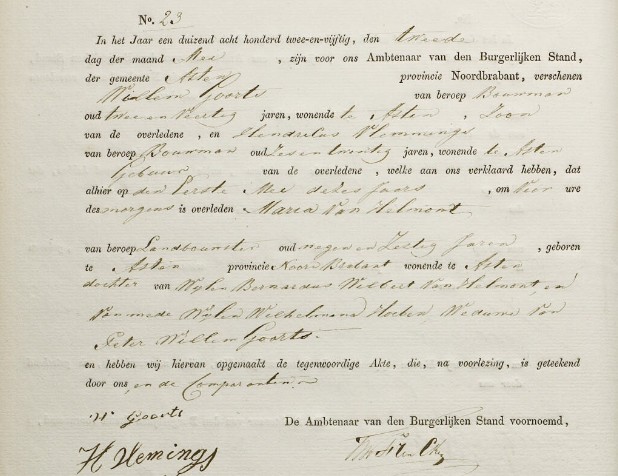 No. 23
In het Jaar een duizend acht honderd twee-en-vijftig, den tweede
dag der maand Mei , zijn voor ons Ambtenaar van den Burgerlijken Stand,
der gemeente Asten provincie Noordbrabant, verschenen
Willem Goorts van beroep Bouwman
oud twee en Veertig jaren, wonende te Asten , Zoon
van de overledene , en Hendrikus Vlemmings
van beroep Bouwman oud Zes en twintig jaren, wonende te Asten
Gebuur van de overledene , welke aan ons verklaard hebben, dat
alhier op den Eerste Mei dezes jaars , om Vier ure
des morgens is overleden Maria Van Helmont
van beroep Landbouwster oud negen en Zestig Jaren , geboren
te Asten provincie Noord Brabant wonende te Asten
dochter van Wijlen Bernardus Wilbert Van Helmont en
van mede Wijlen Wilhelmena Hoeben Weduwe van
Peter Willem Goorts.
en hebben wij hiervan opgemaakt de tegenwoordige Akte, die, na voorlezing, is geteekend
door ons en de Comparanten
W Goorts
De Ambtenaar van den Burgerlijken Stand voornoemd,
H Flemings